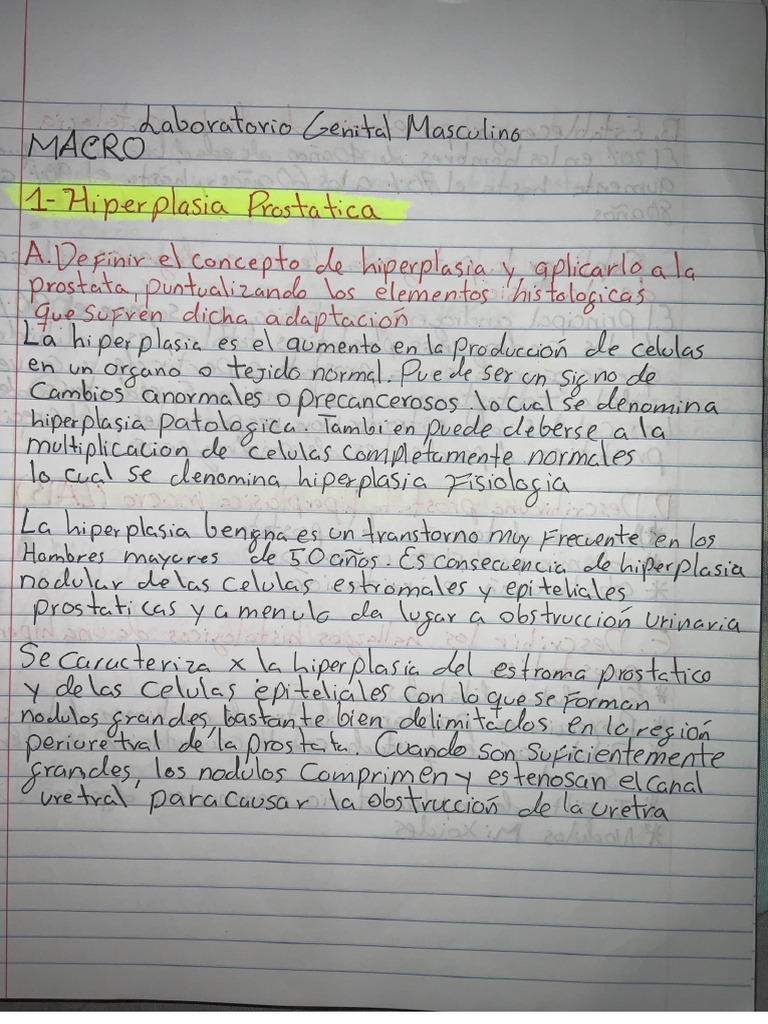 Laboratorio Genital Masculino
MACRO
1- Hiperplasia Prostatica
A. Definir el concepto de hiperplasia y aplicarlo a la
prostata, puntualizando los elementos histologicas
que sufren dicha adaptación
La hiperplasia es el aumento en la Producción de celulas
en un organo o tejido normal. Puede ser un signo de
Cambios anormales o precancerosos lo cual se denomina
hiperplasia patologica. Tambien puede deberse a la
multiplicacion de celulas completamente normales
lo cual se denomina hiperplasia Fisiologia
La hiperplasia bengna es un transtorno muy Frecuente en los
Hombres mayores de 50 años. Es consecuencia de hiperplasia
nodular de las celulas estromales y epiteliales
prostaticas y a menudo da lugar a obstrucción urinaria
Se caracteriza x la hiperplasia del estroma prostatico
y de las celulas epiteliales con lo que se forman
nodulos grandes, bastante bien delimitados en la región
periuretval de la prostata. Cuando son suficientemente
grandes, los nodulos Comprimen y estenosan el canal
uretral para causar la obstrucción de la uretra